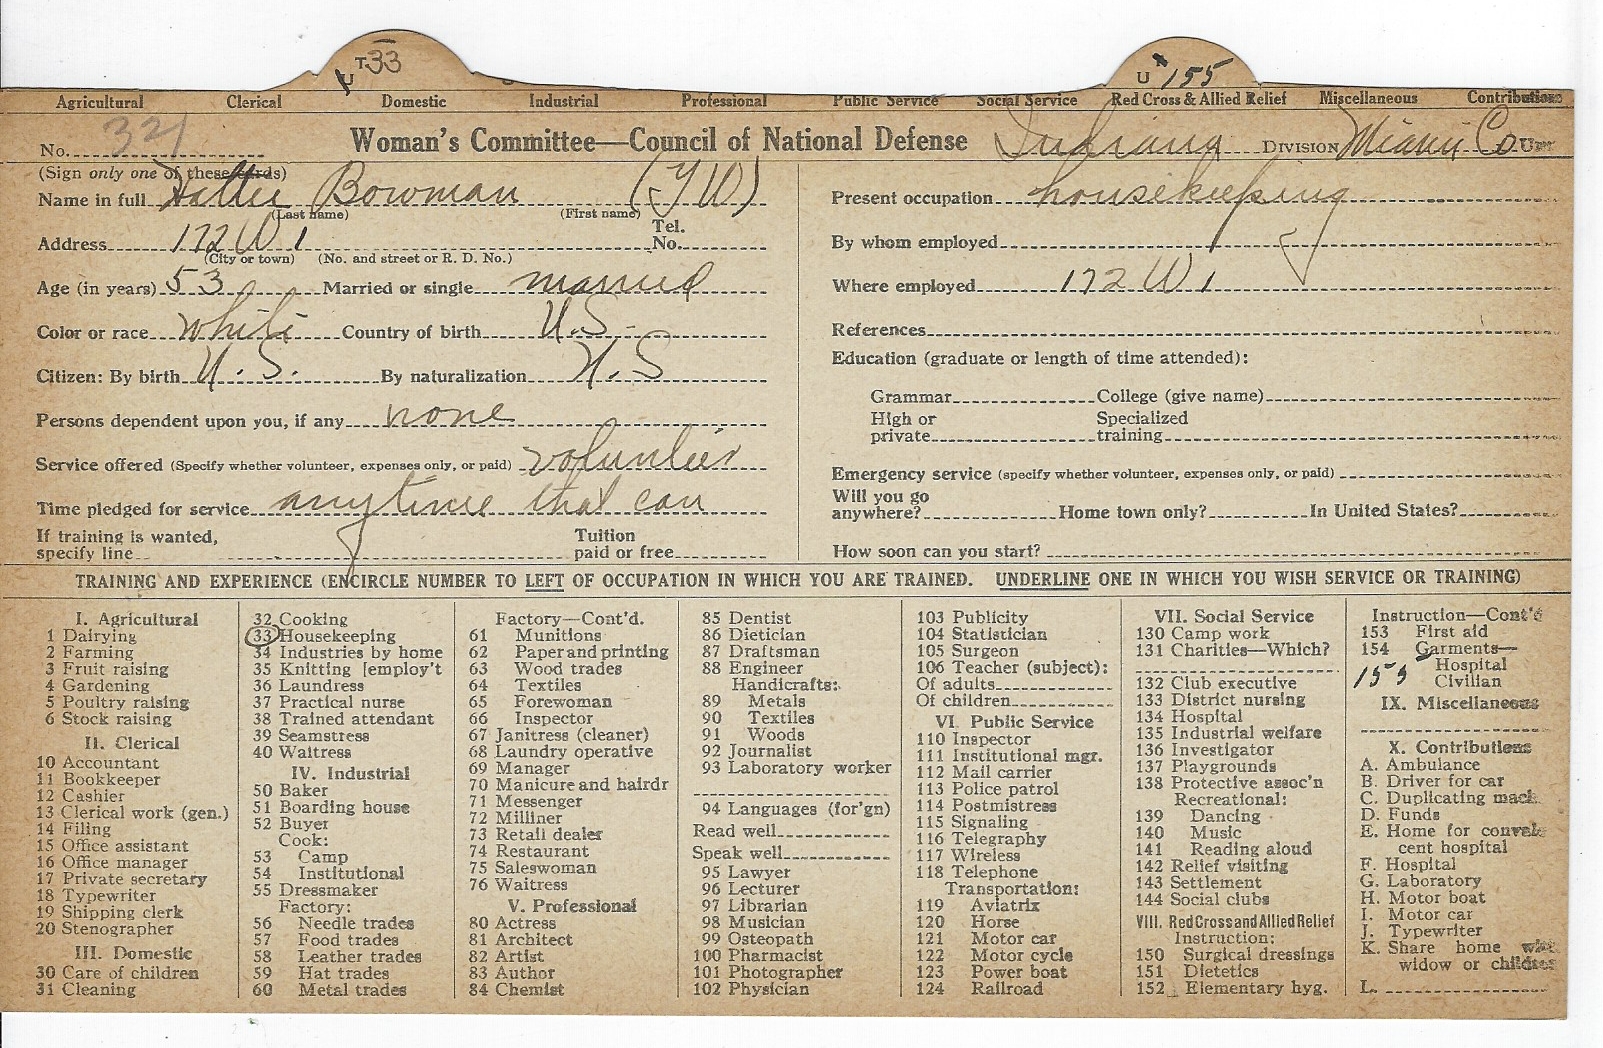 T 33
U 155
Agricultural Clerical Domestic Industrial Professional Public Service Social Service Red Cross & Allied Relief Miscellaneous Contributions
No. 321 Woman's Committee—Council of National Defense Indiana DIVISION Miami Co. UNIT
(Sign only one of these cards)
Name in full Hattie Bowman (YW)
(Last name) (First name)
Address 172 W 1 Tel. No.
(City or town) (No. and street or R. D. No.)
Age (in years) 53 Married or single married
Color or race white Country of birth U.S.
Citizen: By birth U.S. By naturalization U.S
Persons dependent upon you, if any none
Service offered (Specify whether volunteer, expenses only, or paid) volunteer
Time pledged for service anytime that can
If training is wanted, specify line Tuition paid or free
Present occupation housekeeping
By whom employed
Where employed 172 W 1
References
Education (graduate or length of time attended):
Grammar College (give name)
High or private Specialized training
Emergency service (specify whether volunteer, expenses only, or paid)
Will you go anywhere? Home town only? In United States?
How soon can you start?
TRAINING AND EXPERIENCE (ENCIRCLE NUMBER TO LEFT OF OCCUPATION IN WHICH YOU ARE TRAINED. UNDERLINE ONE IN WHICH YOU WISH SERVICE OR TRAINING)
I. Agricultural
1 Dairying
2 Farming
3 Fruit raising
4 Gardening
5 Poultry raising
6 Stock raising
II. Clerical
10 Accountant
11 Bookkeeper
12 Cashier
13 Clerical work (gen.)
14 Filing
15 Office assistant
16 Office manager
17 Private secretary
18 Typewriter
19 Shipping clerk
20 Stenographer
III. Domestic
30 Care of children
31 Cleaning
32 Cooking
33 Housekeeping
34 Industries by home
35 Knitting [employ't
36 Laundress
37 Practical nurse
38 Trained attendant
39 Seamstress
40 Waitress
IV. Industrial
50 Baker
51 Boarding house
52 Buyer
Cook:
53 Camp
54 Institutional
55 Dressmaker
Factory:
56 Needle trades
57 Food trades
58 Leather trades
59 Hat trades
60 Metal trades
Factory—Cont'd.
61 Munitions
62 Paper and printing
63 Wood trades
64 Textiles
65 Forewoman
66 Inspector
67 Janitress (cleaner)
68 Laundry operative
69 Manager
70 Manicure and hairdr
71 Messenger
72 Milliner
73 Retail dealer
74 Restaurant
75 Saleswoman
76 Waitress
V. Professional
80 Actress
81 Architect
82 Artist
83 Author
84 Chemist
85 Dentist
86 Dietician
87 Draftsman
88 Engineer
Handicrafts:
89 Metals
90 Textiles
91 Woods
92 Journalist
93 Laboratory worker
94 Languages (for'gn)
Read well
Speak well
95 Lawyer
96 Lecturer
97 Librarian
98 Musician
99 Osteopath
100 Pharmacist
101 Photographer
102 Physician
103 Publicity
104 Statistician
105 Surgeon
106 Teacher (subject):
Of adults
Of children
VI. Public Service
110 Inspector
111 Institutional mgr.
112 Mail carrier
113 Police patrol
114 Postmistress
115 Signaling
116 Telegraphy
117 Wireless
118 Telephone
Transportation:
119 Aviatrix
120 Horse
121 Motor car
122 Motor cycle
123 Power boat
124 Railroad
VII. Social Service
130 Camp work
131 Charities—Which?
132 Club executive
133 District nursing
134 Hospital
135 Industrial welfare
136 Investigator
137 Playgrounds
138 Protective assoc'n
Recreational:
139 Dancing
140 Music
141 Reading aloud
142 Relief visiting
143 Settlement
144 Social clubs
VIII. Red Cross and Allied Relief
Instruction:
150 Surgical dressings
151 Dietetics
152 Elementary hyg.
Instruction—Cont'd
153 First aid
154 Garments—
Hospital
155 Civilian
IX. Miscellaneous
X. Contributions
A. Ambulance
B. Driver for car
C. Duplicating mach.
D. Funds
E. Home for convales
cent hospital
F. Hospital
G. Laboratory
H. Motor boat
I. Motor car
J. Typewriter
K. Share home with
widow or children
L.